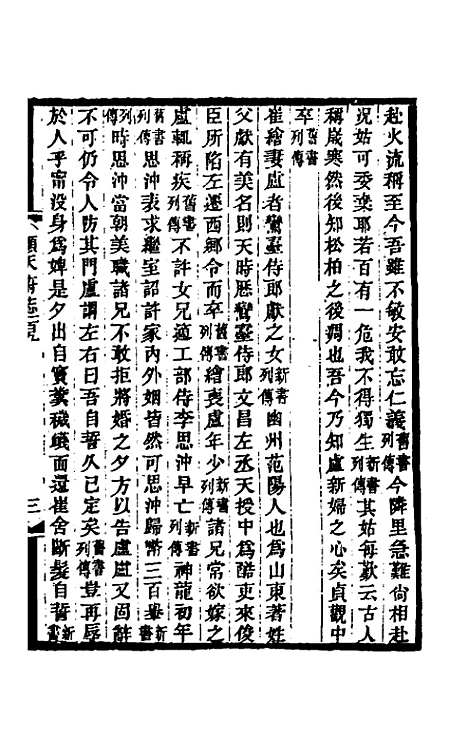 赴火流稱至今吾雖不敏安敢忘仁義舊書列傳今隣里急難尙相赴
况姑可委棄耶若百有一危我不得獨生新書列傳其姑每歎云古人
稱歲寒然後知松柏之後凋也吾今乃知盧新婦之心矣貞觀中
卒舊書列傳
崔繪妻盧者鸞臺侍郎獻之女新書列傳幽州范陽人也爲山東著姓
父獻有美名則天時歷鸞臺侍郎文昌左丞天授中爲酷吏來俊
臣所陷左遷西鄉令而卒舊書列傳繪喪盧年少列傳諸兄常欲嫁之
盧輒稱疾舊書列傳不許女兄適工部侍李思沖早亡新書列傳神龍初年
舊書列傳思沖表求繼室詔許家內外姻皆然可思沖歸幣三百轝新書
列傳時思沖當朝美職諸兄不敢拒將婚之夕方以告盧盧又固辭
不可仍令人防其門盧謂左右曰吾自誓久已定矣舊書列傳豈再辱
於人乎甯沒身爲婢是夕出自竇糞穢衊面還崔舍斷髮自誓新書
順天府志一百
三